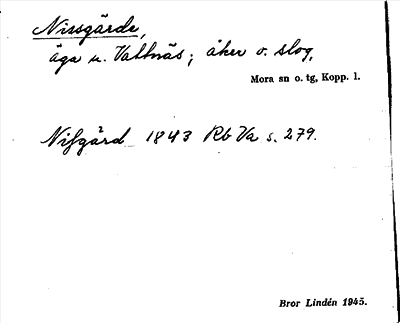 Nissgärde,
äga u. Vattnäs; åker o. slog,
Mora sn o. tg, Kopp. l.
Nifgård 1843 Rb Va s. 279.
Bror Lindén 1945.